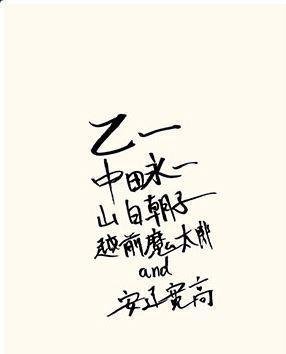 乙一
中田永一
山白朝子
越前魔太郎
and
安達寛高